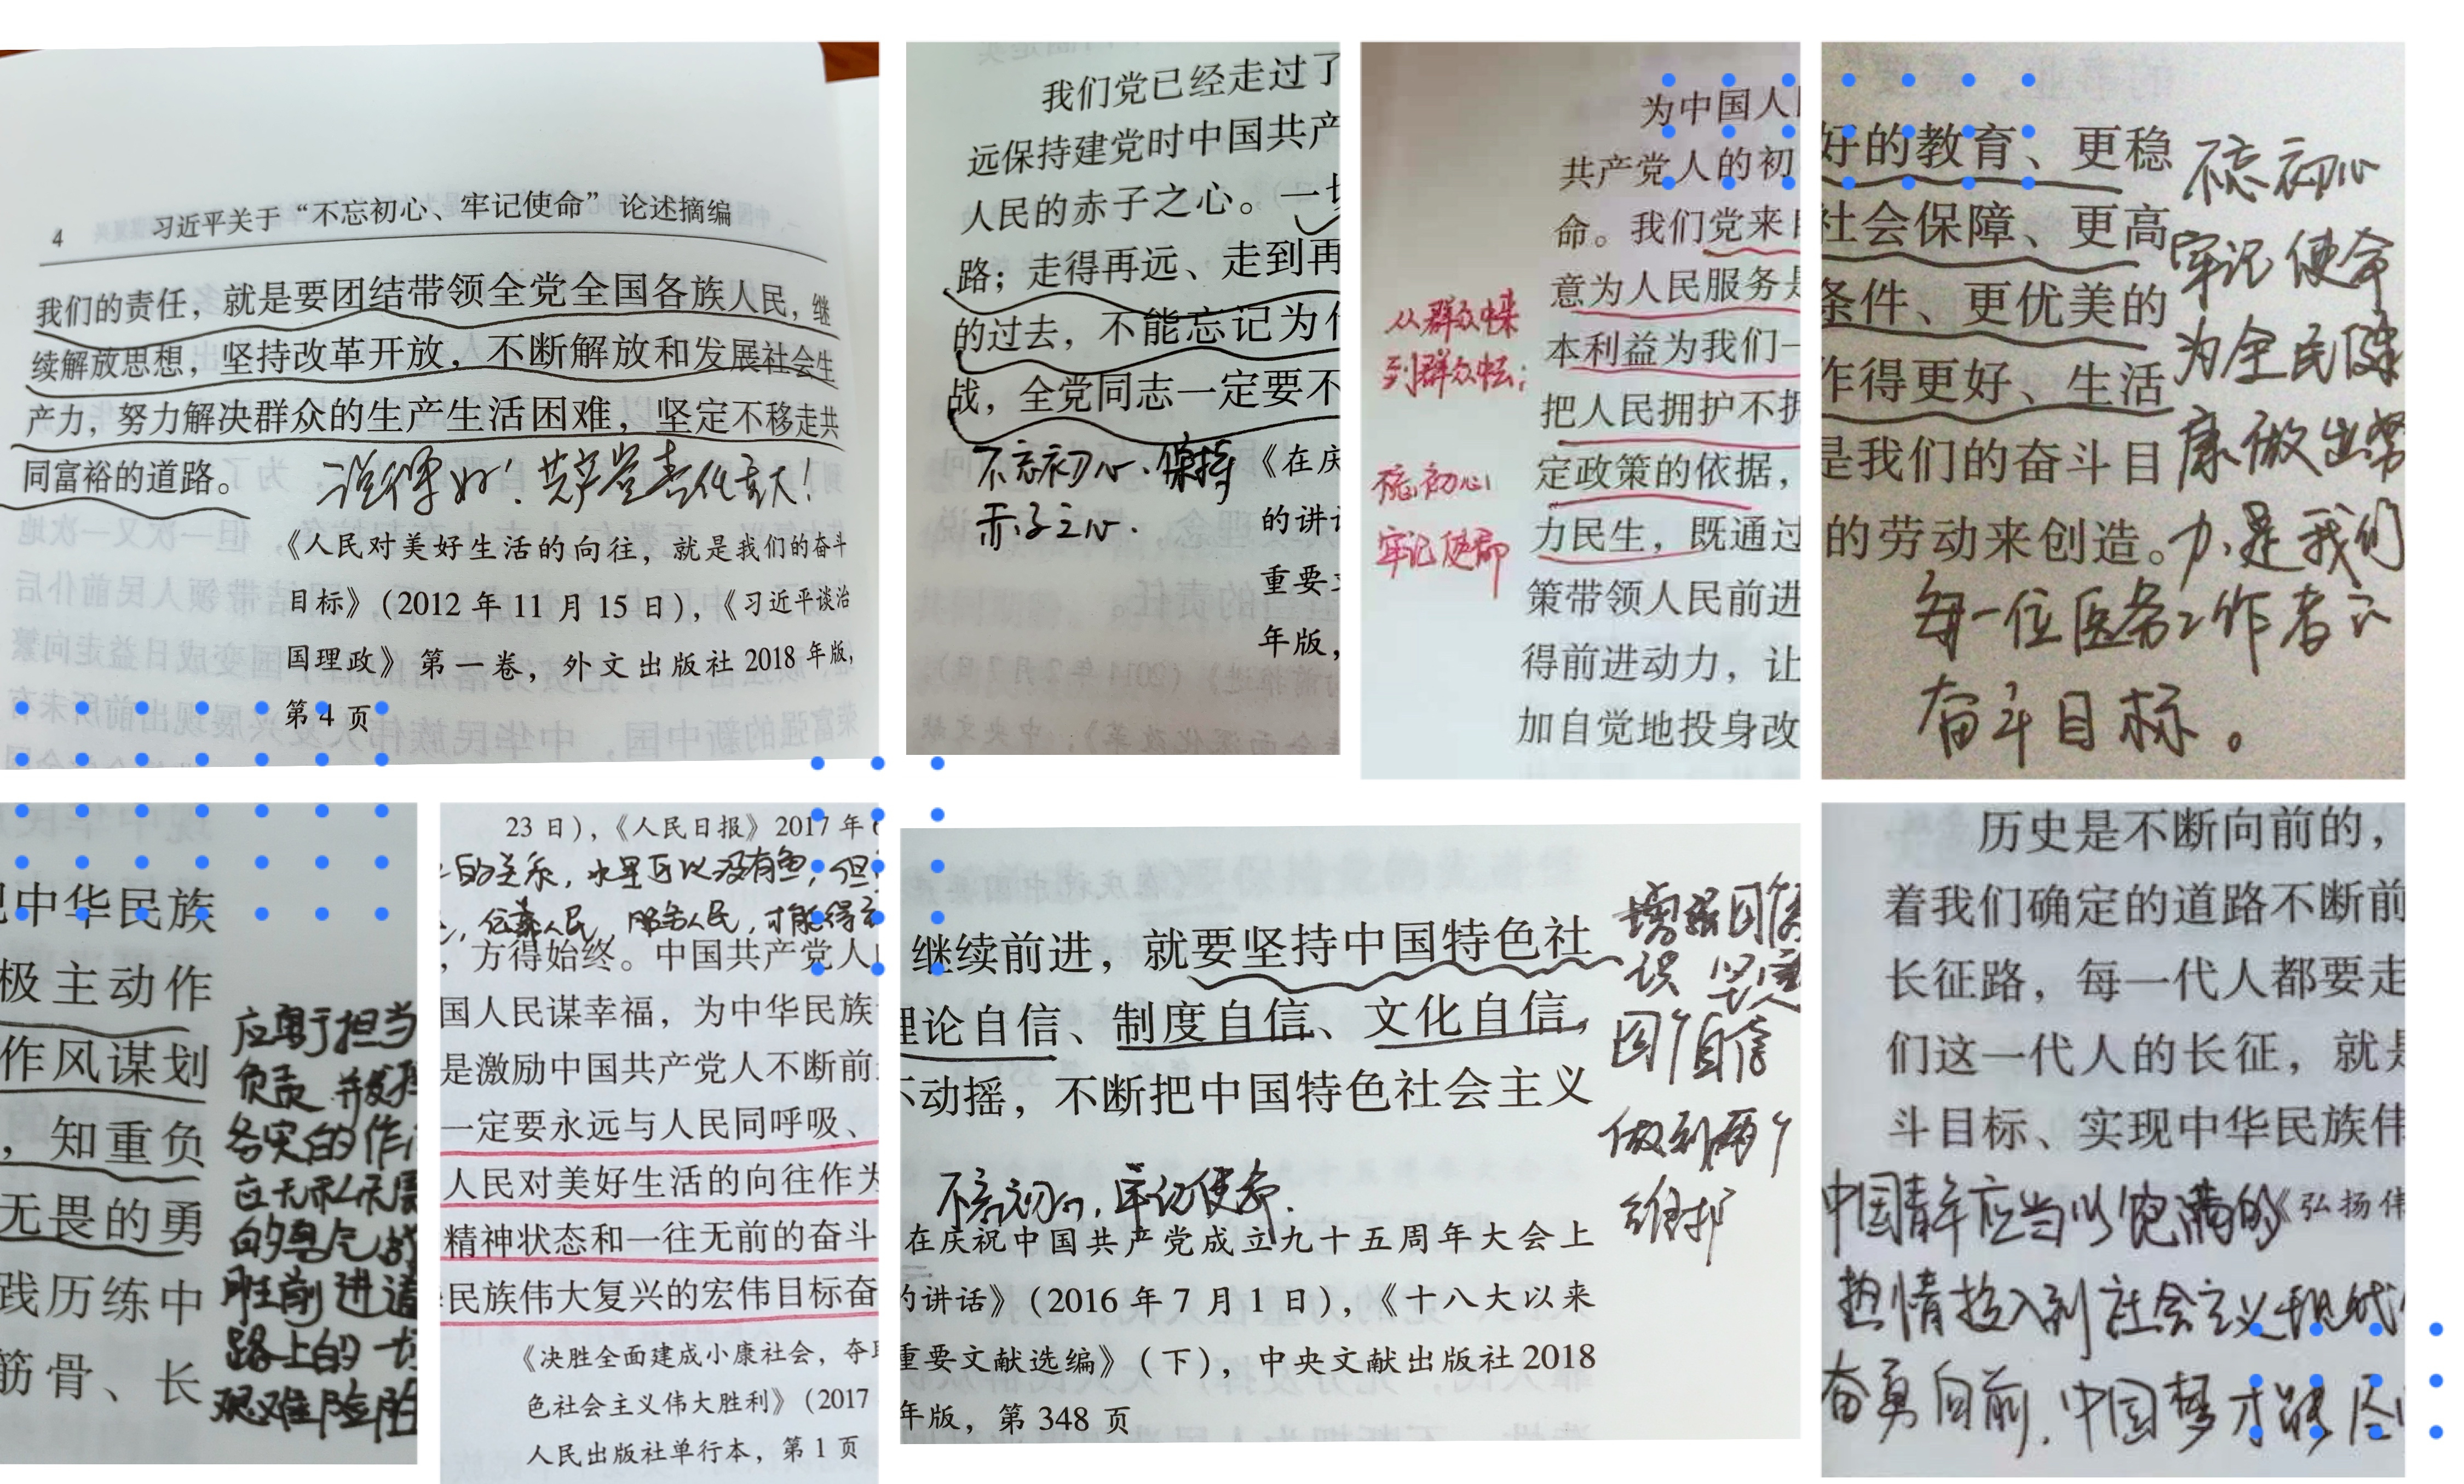 4 习近平关于“不忘初心、牢记使命”论述摘编
我们的责任，就是要团结带领全党全国各族人民，继
续解放思想，坚持改革开放，不断解放和发展社会生
产力，努力解决群众的生产生活困难，坚定不移走共
同富裕的道路。
说得好！共产党责任重大！
《人民对美好生活的向往，就是我们的奋斗
目标》（2012 年 11 月 15 日），《习近平谈治
国理政》第一卷，外文出版社 2018 年版，
第 4 页
我们党已经走过了
远保持建党时中国共产
人民的赤子之心。一切
路；走得再远、走到再
的过去，不能忘记为什
战，全党同志一定要不
不忘初心．保持
赤子之心．
《在庆
的讲话
重要文
年版，
为中国人民
共产党人的初
命。我们党来自
意为人民服务是
本利益为我们一
把人民拥护不拥
定政策的依据，
力民生，既通过
策带领人民前进
得前进动力，让
加自觉地投身改
从群众中来
到群众中去；
不忘初心
牢记使命
好的教育、更稳
社会保障、更高
条件、更优美的
作得更好、生活
是我们的奋斗目
的劳动来创造。
不忘初心
牢记使命
为全民健
康做出努
力，是我们
每一位医务工作者的
奋斗目标。
中华民族
极主动作
作风谋划
，知重负
无畏的勇
践历练中
筋骨、长
应勇于担当
负责 并发扬
务实的作
应无私无畏
的勇气 战
胜前进道
路上的一切
艰难险阻
23 日），《人民日报》2017 年 6
的关系，水里可以没有鱼，但
，依靠人民，服务人民，才能得
，方得始终。中国共产党人
国人民谋幸福，为中华民族
是激励中国共产党人不断前
一定要永远与人民同呼吸、
人民对美好生活的向往作为
精神状态和一往无前的奋斗
民族伟大复兴的宏伟目标奋
《决胜全面建成小康社会，夺取
色社会主义伟大胜利》（2017
人民出版社单行本，第 1 页
继续前进，就要坚持中国特色社
理论自信、制度自信、文化自信，
不动摇，不断把中国特色社会主义
不忘初心，牢记使命．
在庆祝中国共产党成立九十五周年大会上
的讲话》（2016 年 7 月 1 日），《十八大以来
重要文献选编》（下），中央文献出版社 2018
年版，第 348 页
增强四个意
识 坚定
四个自信
做到两个
维护
历史是不断向前的，
着我们确定的道路不断前
长征路，每一代人都要走
们这一代人的长征，就是
斗目标、实现中华民族伟
中国青年应当以饱满的
《弘扬伟
热情投入到社会主义现代
奋勇向前．中国梦才能